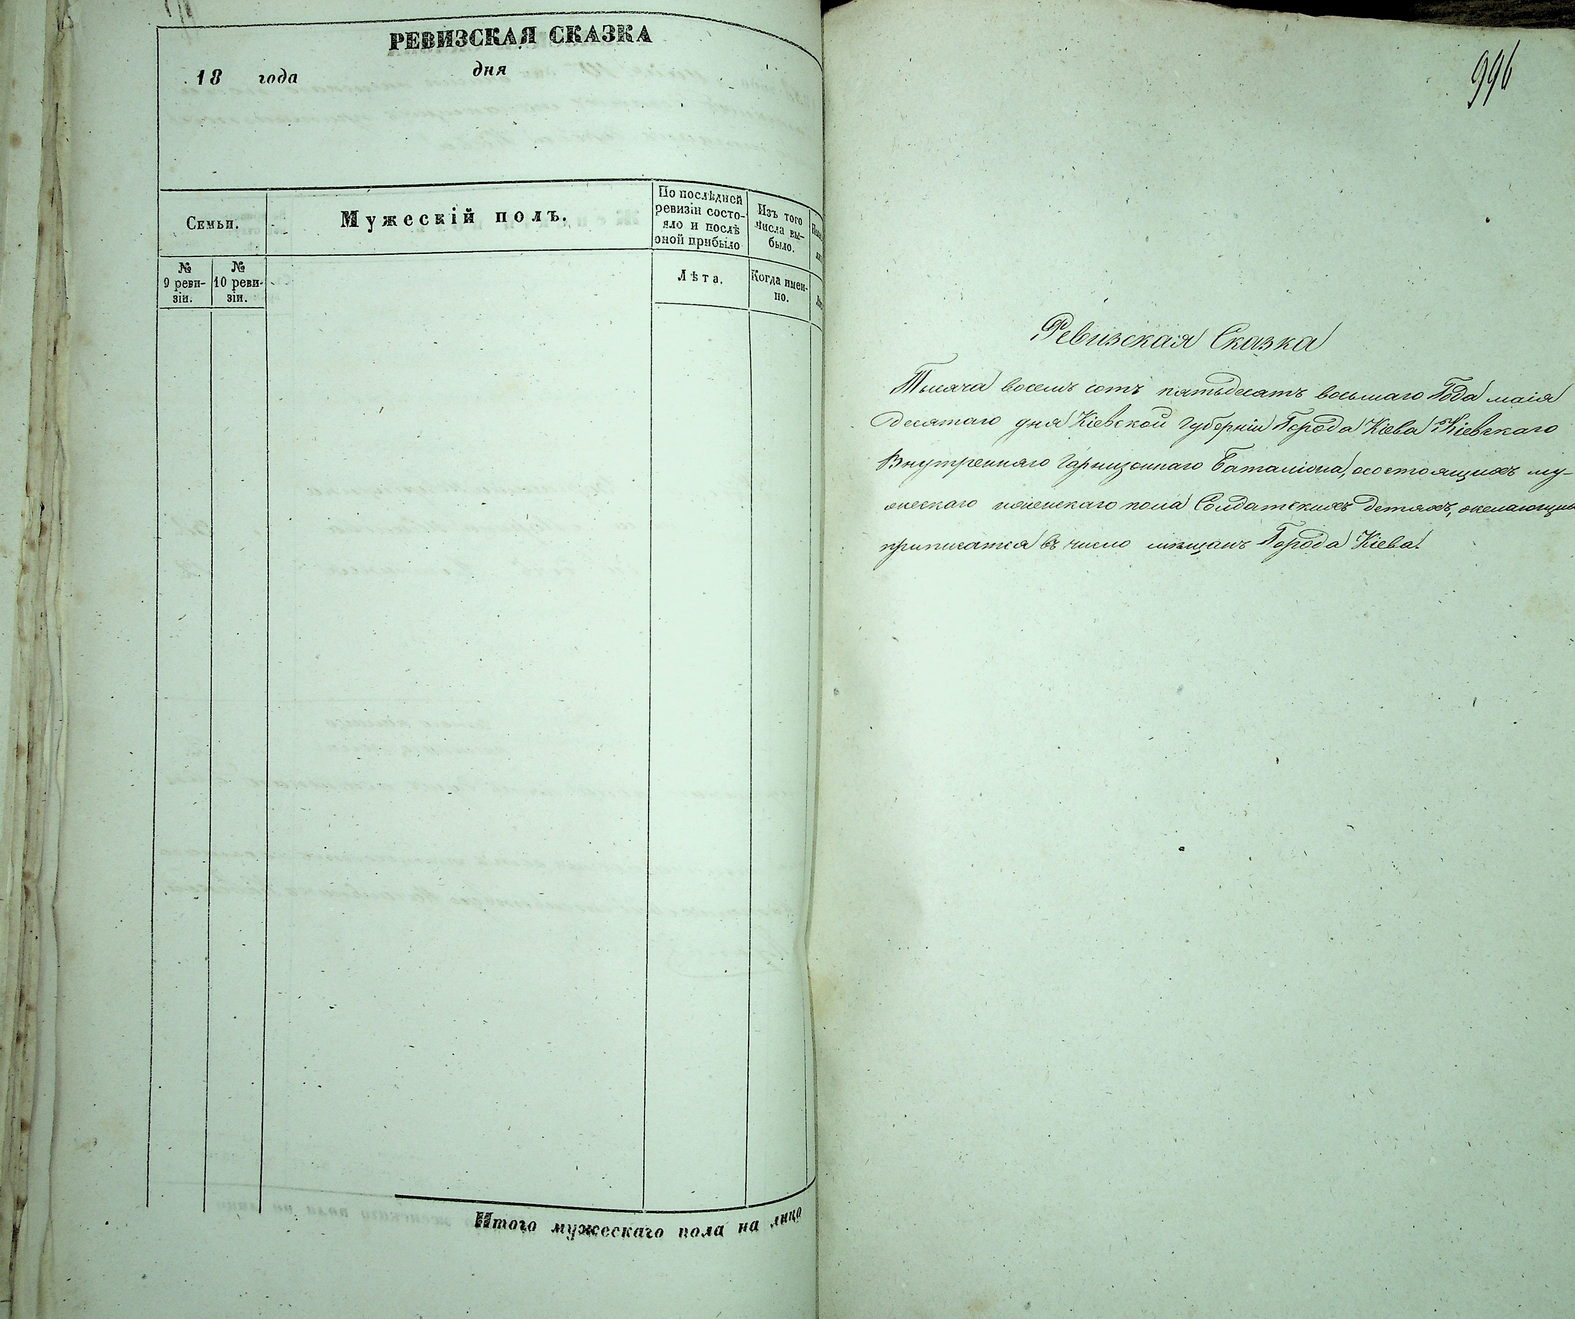 РЕВИЗСКАЯ СКАЗКА
18 года дня
Семьи.
Мужескій полъ.
По послѣдней
ревизіи состо-
яло и послѣ
оной прибыло
Изъ того
числа вы-
было.
№
9 реви-
зіи.
№
10 реви-
зіи.
Лѣта.
Когда имен-
но.
Итого мужескаго пола на лицо
996
Ревизская Сказка
Тысяча восемь сотъ пятьдесятъ восьмаго Года маія
десятаго дня Кіевской губерніи Города Кіева Кіевскаго
Внутренняго Гарнизоннаго Баталіона, о состоящихъ му-
жескаго и женскаго пола Солдатскихъ детяхъ, желающихъ
приписатся въ число мѣщанъ Города Кіева.